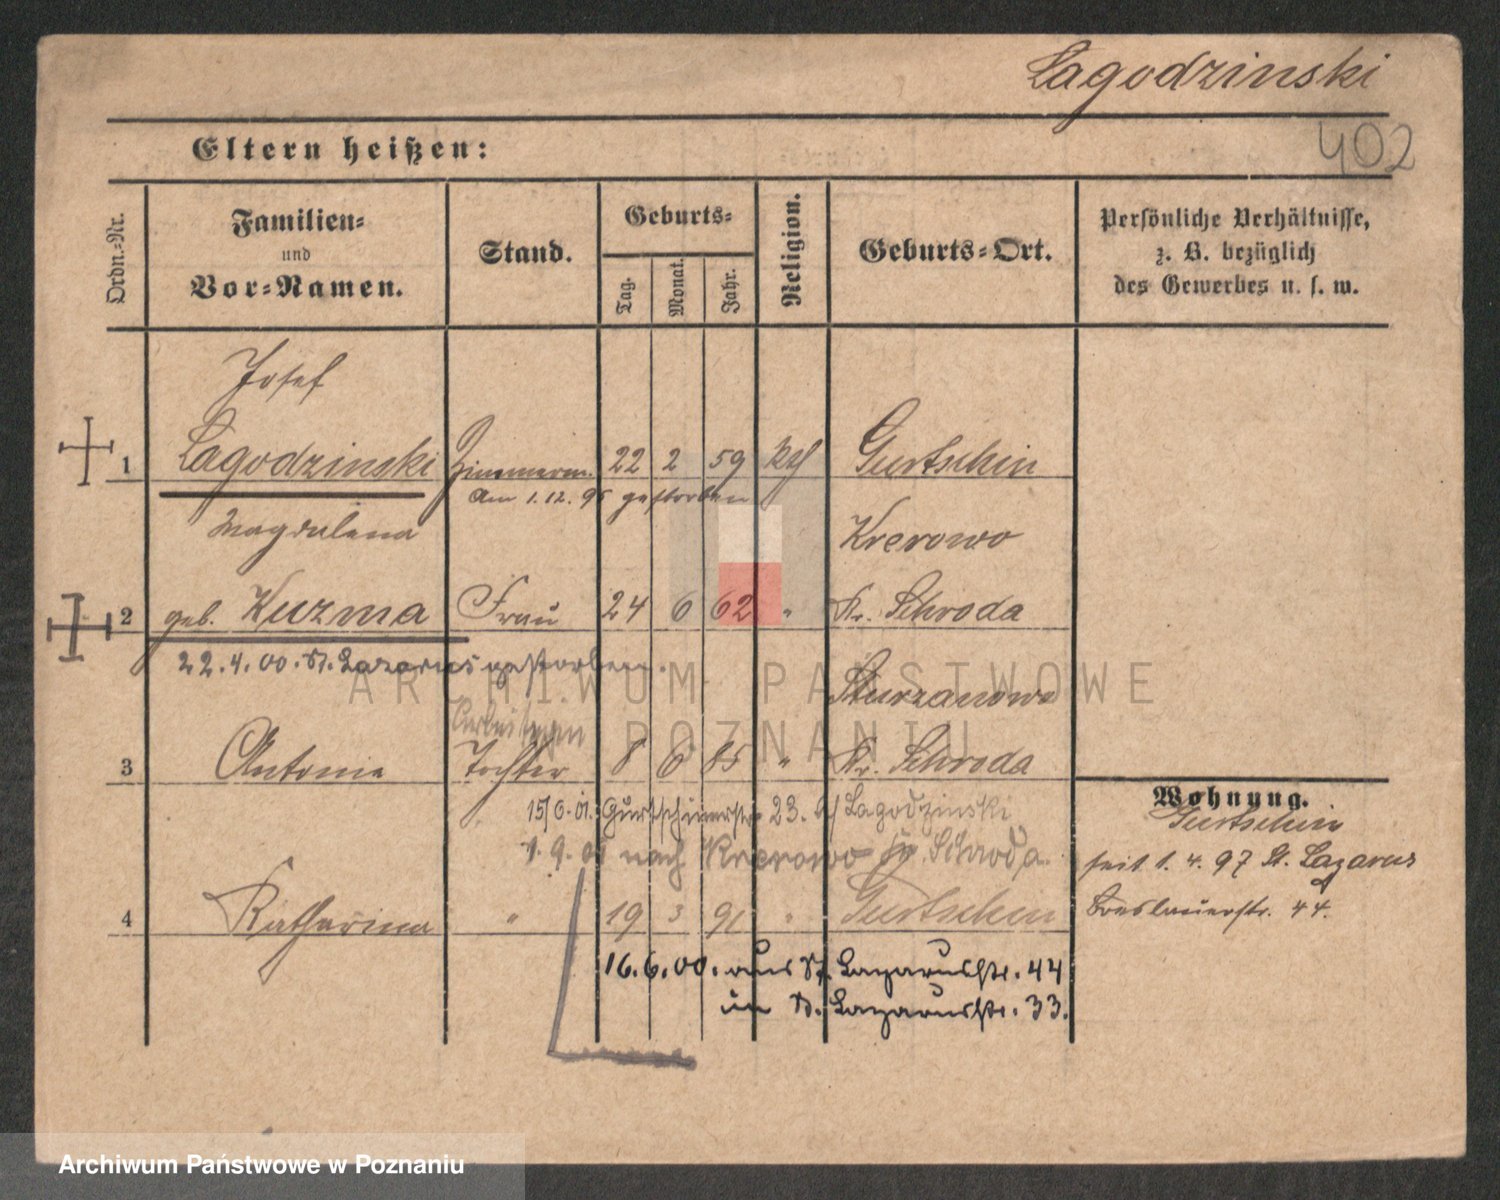 Lagodzinski
402
Eltern heißen:
Ordn.-Nr.
Familien-
und
Vor-Namen.
Stand.
Geburts-
Tag.
Monat.
Jahr.
Religion.
Geburts-Ort.
Persönliche Verhältnisse,
z. B. bezüglich
des Gewerbes u. s. w.
Josef
1 Lagodzinski Zimmerm. 22 2 59 kth Gurtschin
Am 1.12.95 gestorben
Magdalena
Krerowo
2 geb. Kuzma Frau 24 6 62 " Kr. Schroda
22.4.00. St. Lazarus gestorben.
ARCHIWUM PAŃSTWOWE
W POZNANIU
Arbeiterin
3 Antonie Tochter 8 6 85 " Kr. Schroda
Wohnung.
Gurtschin
Gurtschinerstr. 23. b/ Lagodzinski
nach Krerowo Kr. Schroda.
seit 1.4.97 St. Lazarus
4 Katharina " 19 3 91 " Gurtschin
Breslauerstr. 44.
16.6.00. aus St. Lazarusstr. 44
in St. Lazarusstr. 33.
Archiwum Państwowe w Poznaniu